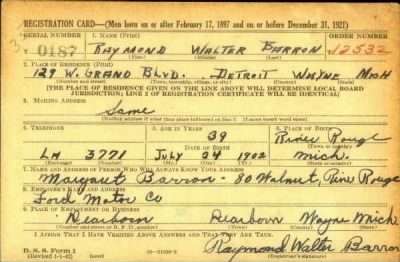 REGISTRATION CARD—(Men born on or after February 17, 1897 and on or before December 31, 1921)
SERIAL NUMBER 1. NAME (Print) ORDER NUMBER
T 0187 RAYMOND WALTER BARRON 12532
(First) (Middle) (Last)
2. PLACE OF RESIDENCE (Print)
129 W. GRAND BLVD. DETROIT WAYNE MICH
(Number and street) (Town, township, village, or city) (County) (State)
[THE PLACE OF RESIDENCE GIVEN ON THE LINE ABOVE WILL DETERMINE LOCAL BOARD
JURISDICTION; LINE 2 OF REGISTRATION CERTIFICATE WILL BE IDENTICAL]
3. MAILING ADDRESS
Same
(Mailing address if other than place indicated on line 2. If same insert word same)
4. TELEPHONE 5. AGE IN YEARS 6. PLACE OF BIRTH
39 River Rouge
DATE OF BIRTH (Town or county)
LA 3771 JULY 24 1902 Mich.
(Exchange) (Number) (Mo.) (Day) (Yr.) (State or country)
7. NAME AND ADDRESS OF PERSON WHO WILL ALWAYS KNOW YOUR ADDRESS
Margaret Barron - 80 Walnut, River Rouge
8. EMPLOYER'S NAME AND ADDRESS
Ford Motor Co
9. PLACE OF EMPLOYMENT OR BUSINESS
Dearborn Dearborn Wayne Mich.
(Number and street or R. F. D. number) (Town) (County) (State)
I AFFIRM THAT I HAVE VERIFIED ABOVE ANSWERS AND THAT THEY ARE TRUE.
D. S. S. Form 1
(Revised 1-1-42) (over)
Raymond Walter Barron